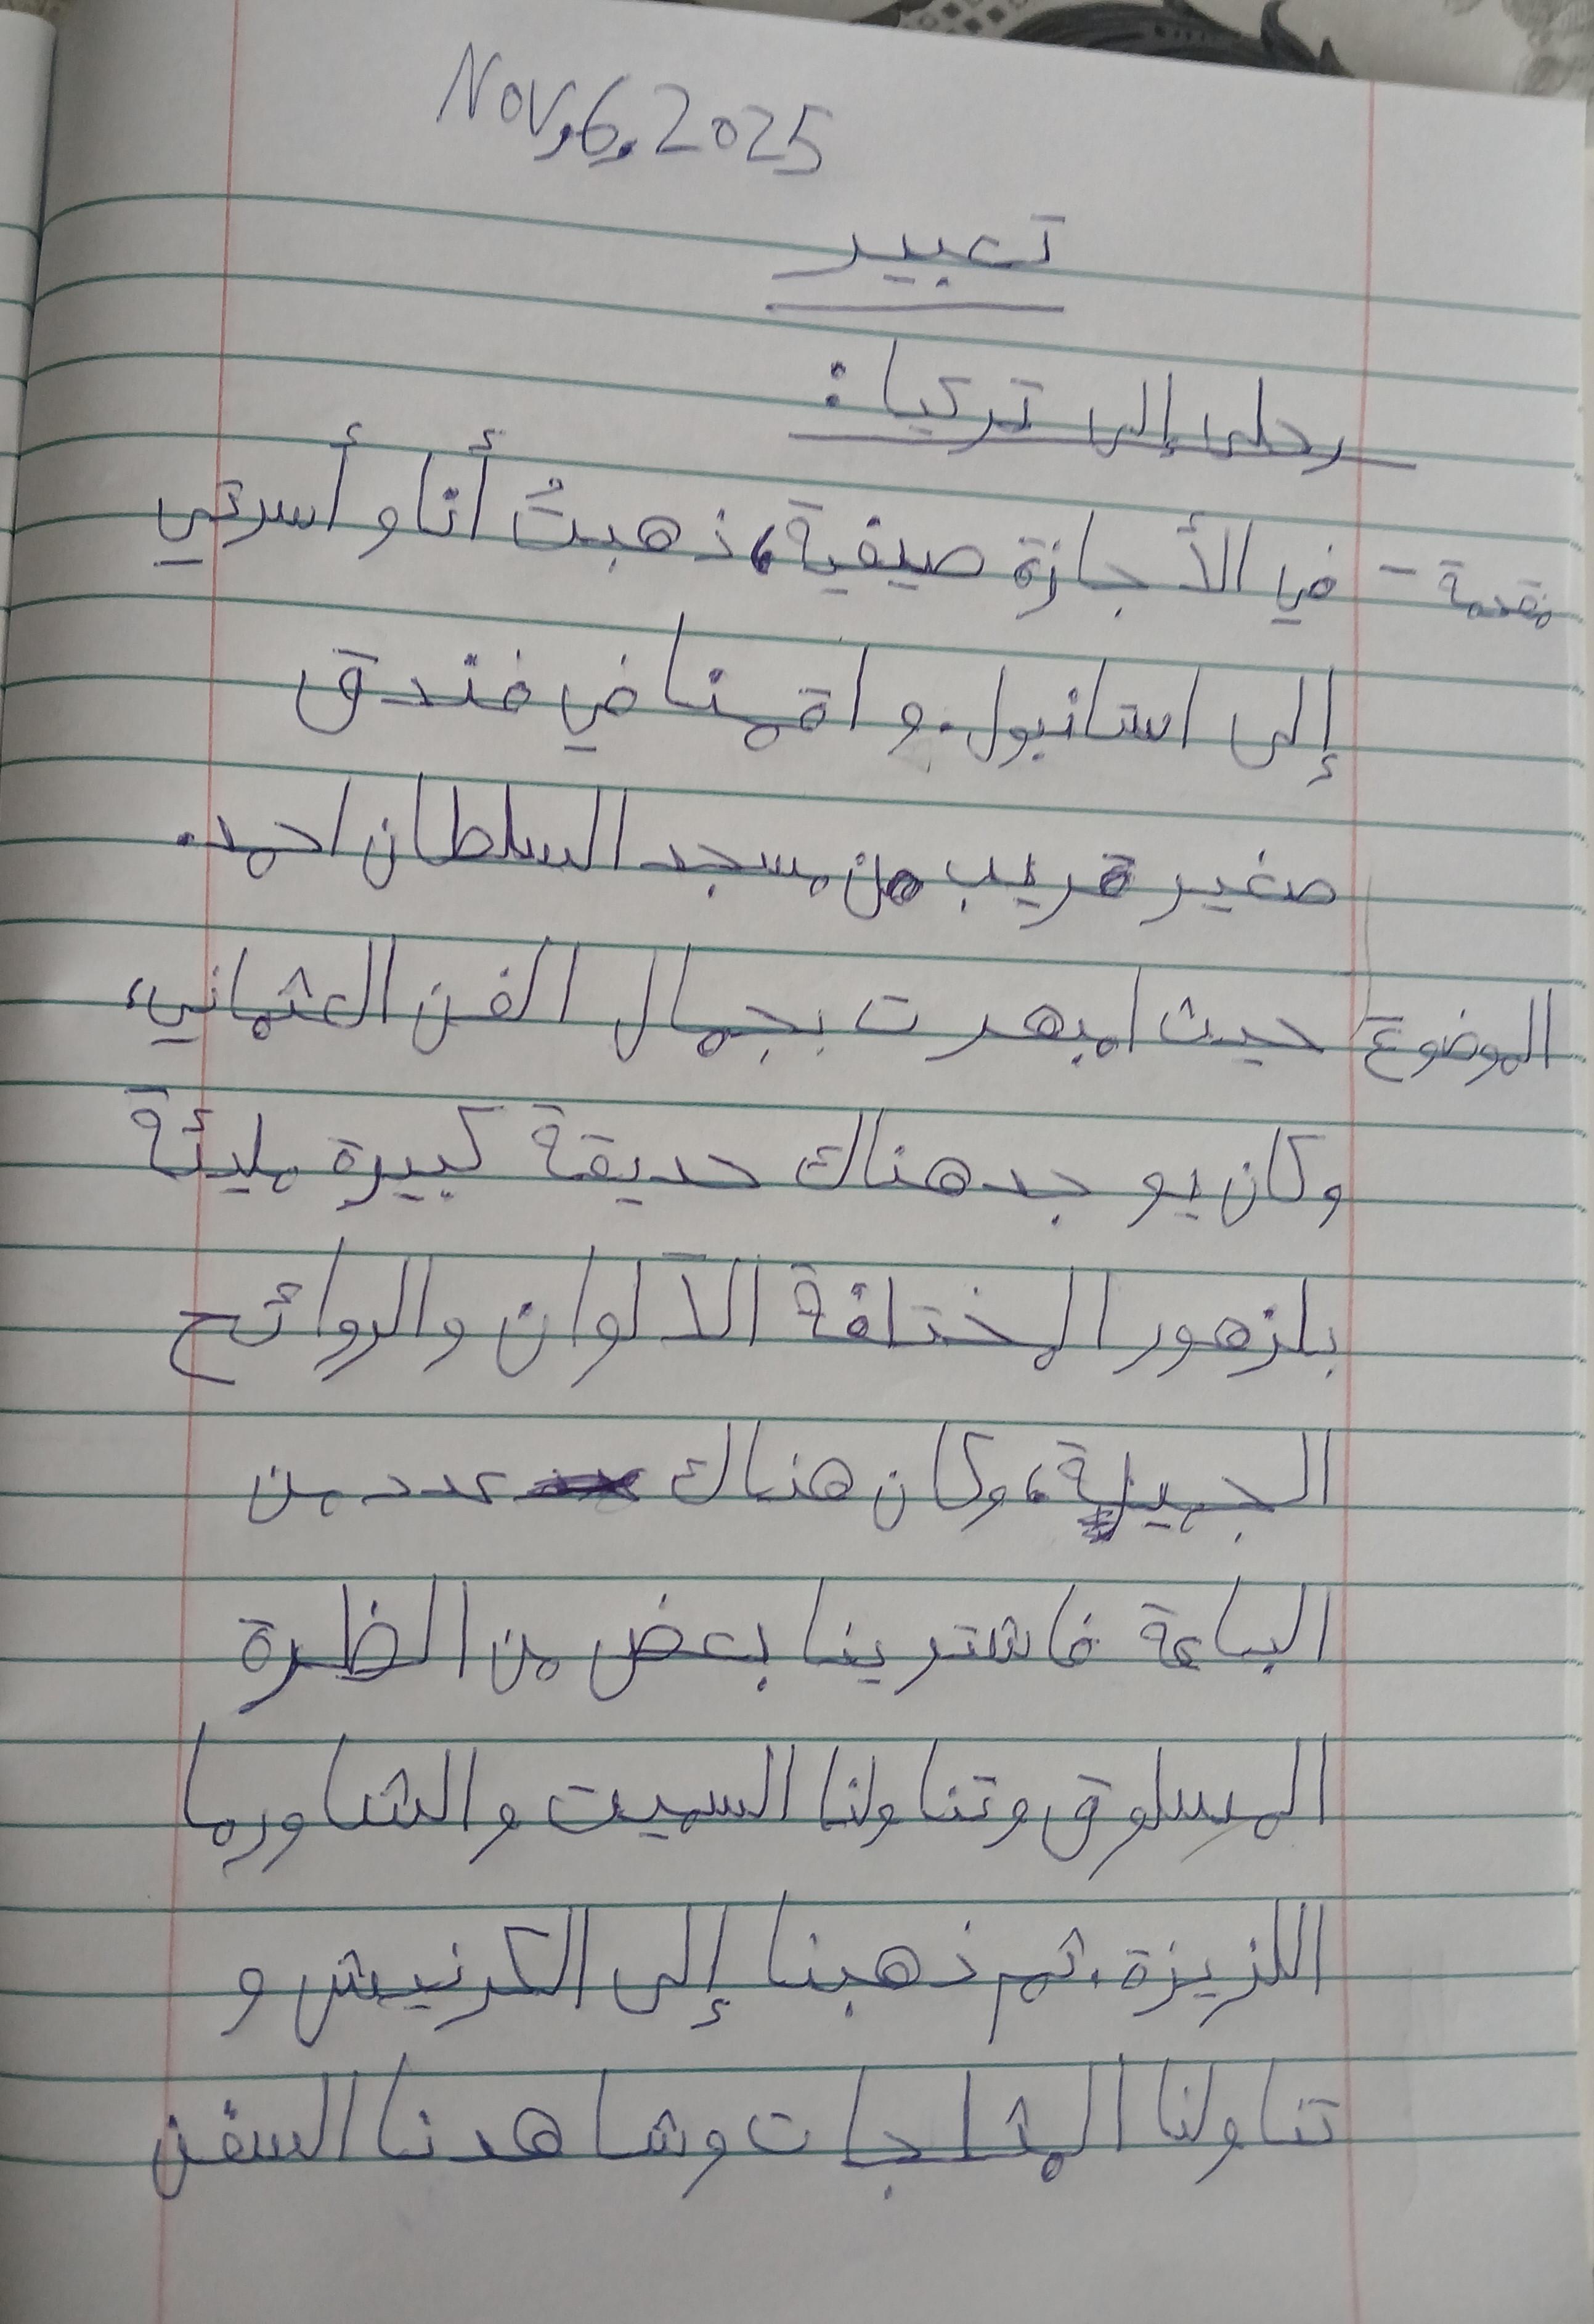 Nov, 6, 2025
تعبير
رحلى إلى تركيا :
مقدمة - في الأجازة صيفية، ذهبتُ أنا و أسرتي
إلى استانبول. و اقمنا في فندق
صغير قريب من مسجد السلطان احمد.
الموضوع حيث امبهرت بجمال الفن العثماني،
وكان يوجد هناك حديقة كبيرة مليئة
بلزهور المختلفة الألوان والروائح
الجميلة، وكان هناك عدد من
الباعة فاشترينا بعض من الظرة
المسلوق وتناولنا السميت و الشاورما
اللزيزة. ثم ذهبنا إلى الكرنيش و
تناولنا المثلجات وشاهدنا السفن